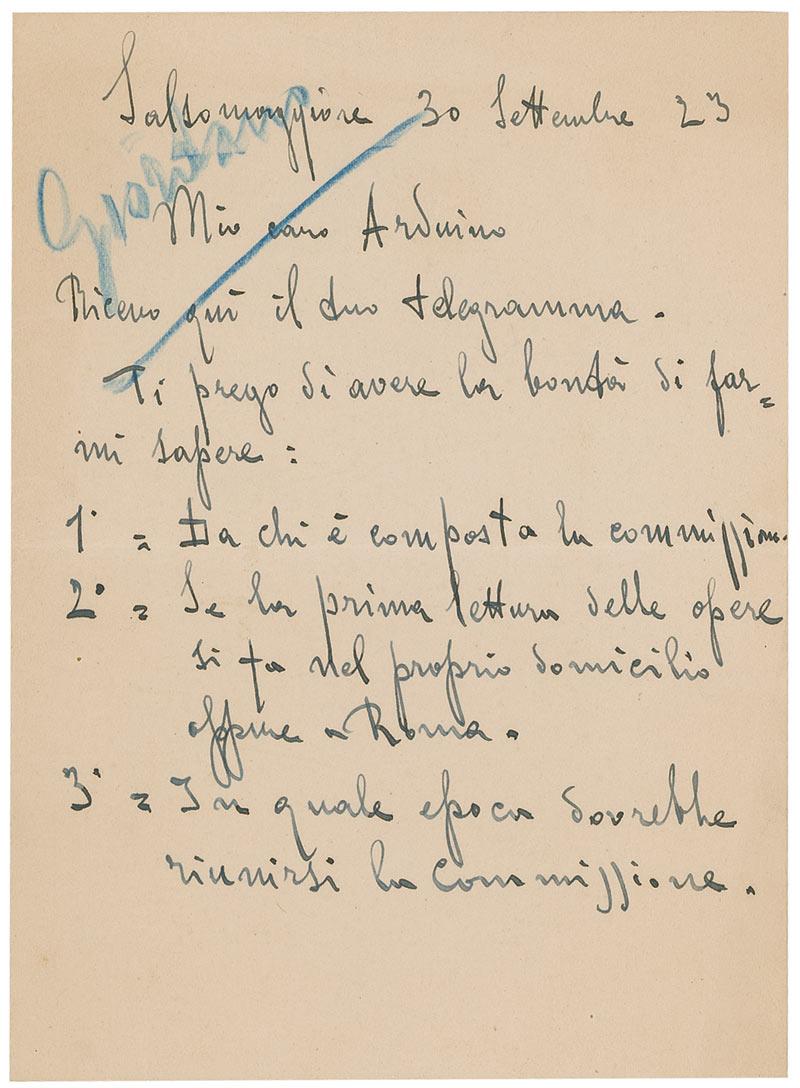 Salsomaggiore 30 Settembre 23
Giordano
Mio caro Arduino
Ricevo quì il tuo telegramma.
Ti prego di avere la bontà di far=
mi sapere:
1° = Da chi è composta la commissione.
2° = Se la prima lettura delle opere
si fa nel proprio domicilio
oppure a Roma.
3° = In quale epoca dovrebbe
riunirsi la Commissione.